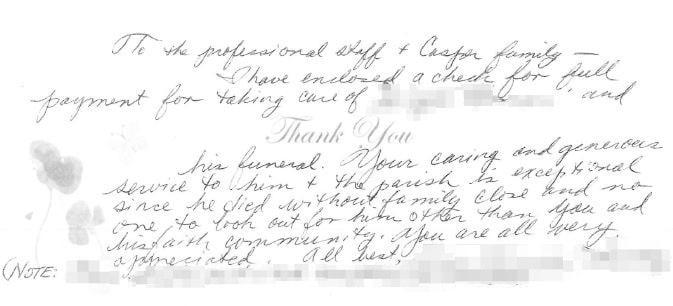 To the professional staff + Casper family —
I have enclosed a check for full
payment for taking care of and
Thank You
his funeral. Your caring and generous
service to him + the parish is exceptional
since he died without family close and no
one to look out for him other than you and
his faith community. You are all very
appreciated. All best,
(NOTE: